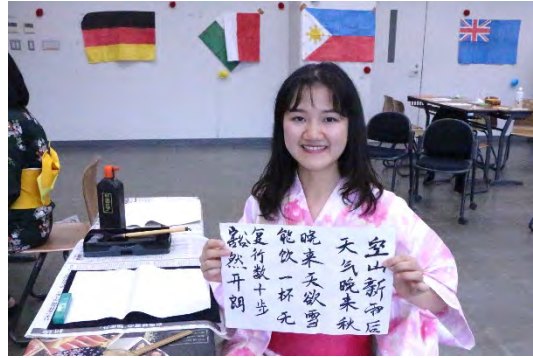 空山新雨后
天气晚来秋
晚来天欲雪
能饮一杯无
复行数十步
豁然开朗